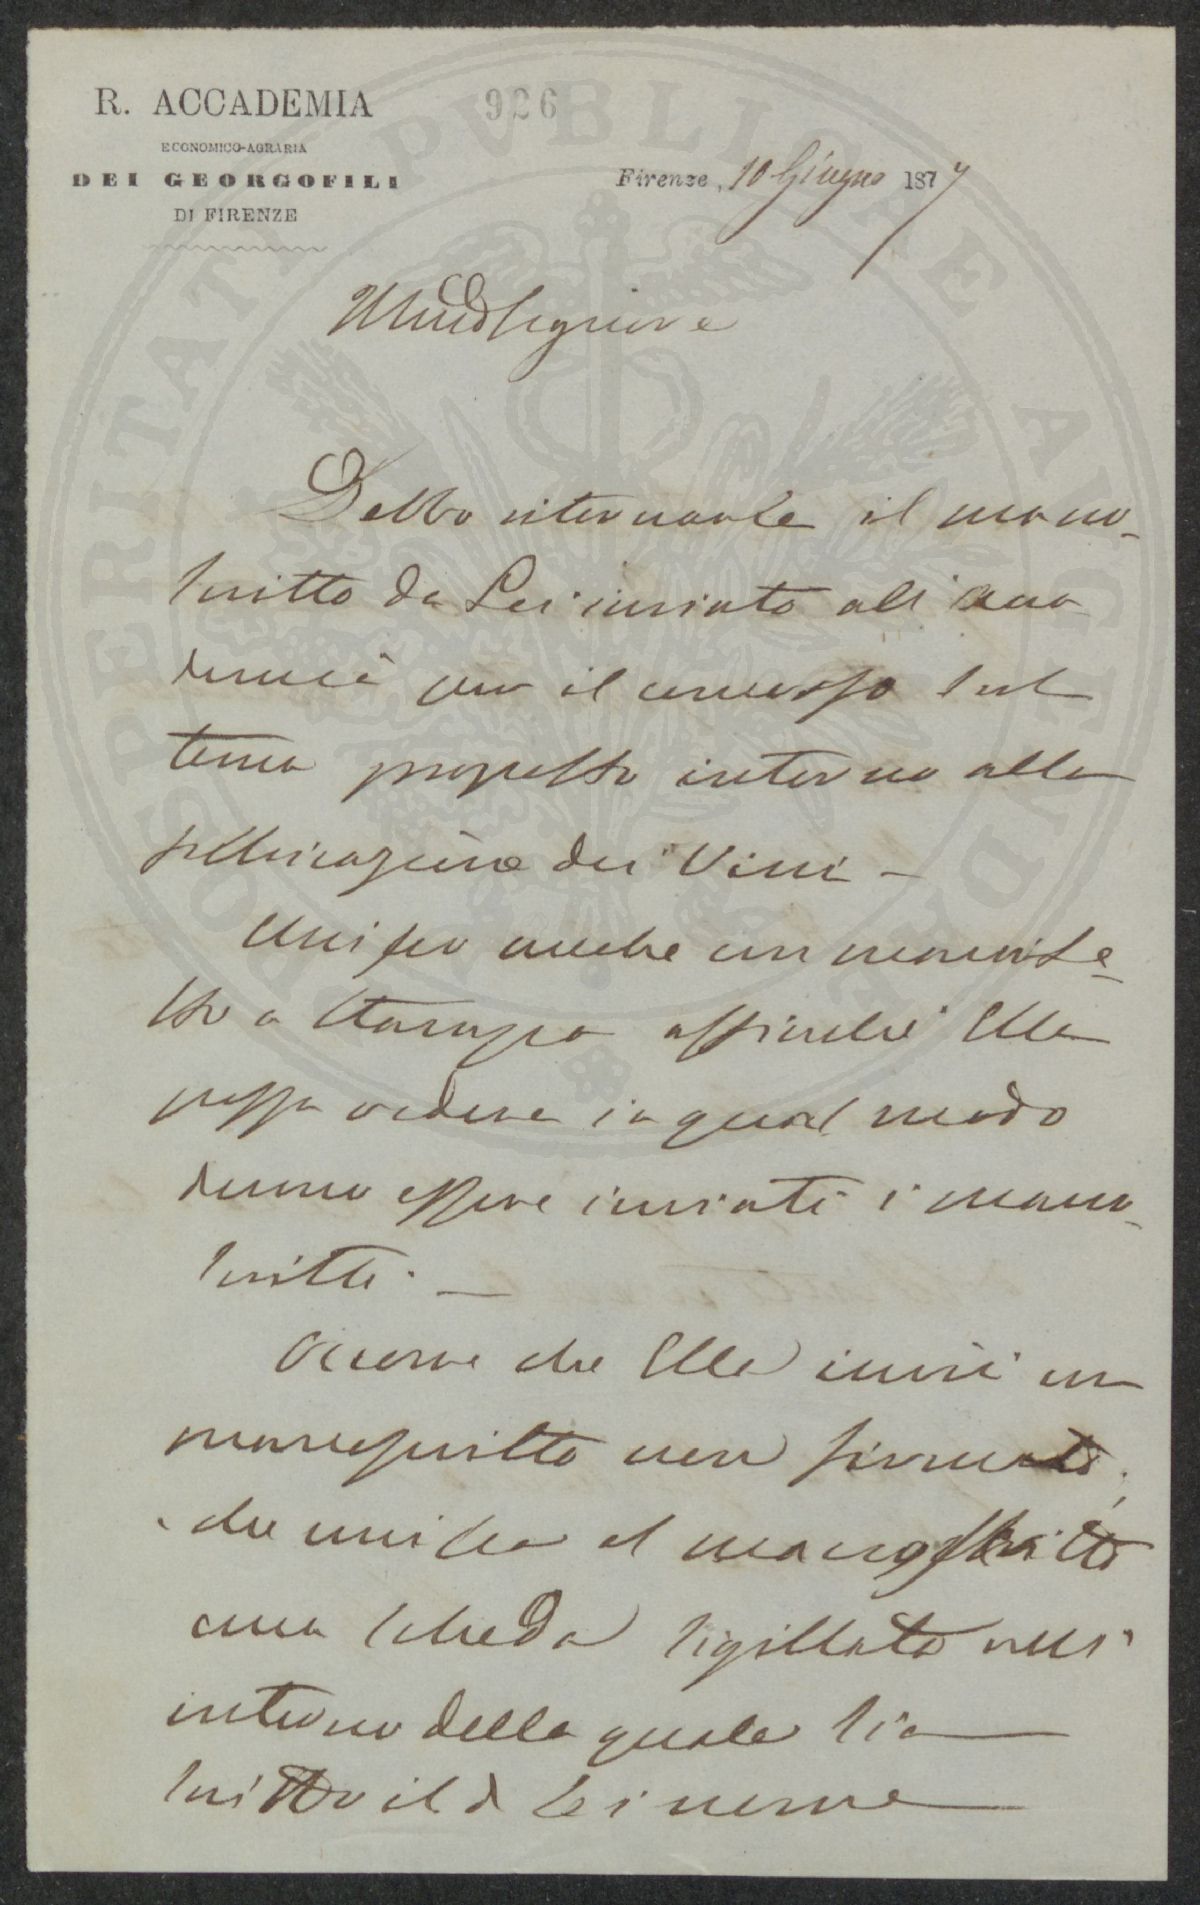 R. ACCADEMIA
ECONOMICO-AGRARIA
DEI GEORGOFILI
DI FIRENZE
926
Firenze, 10 Giugno 1877
Signore
Debbo ritornarle il mano-
scritto da Lei inviato all' Acca
demia per il concorso sul
tema proposto intorno alla
fabbricazione dei Vini -
Unisco anche un manife-
sto a stampa affinché Ella
possa vedere in qual modo
devono essere inviati i mano-
scritti. -
Occorre che Ella invii un
manoscritto non firmato;
che unisca al manoscritto
una scheda sigillata nell'
interno della quale sia
scritto il di Lei nome
PROSPERITATI PVBLICAE AVGENDAE